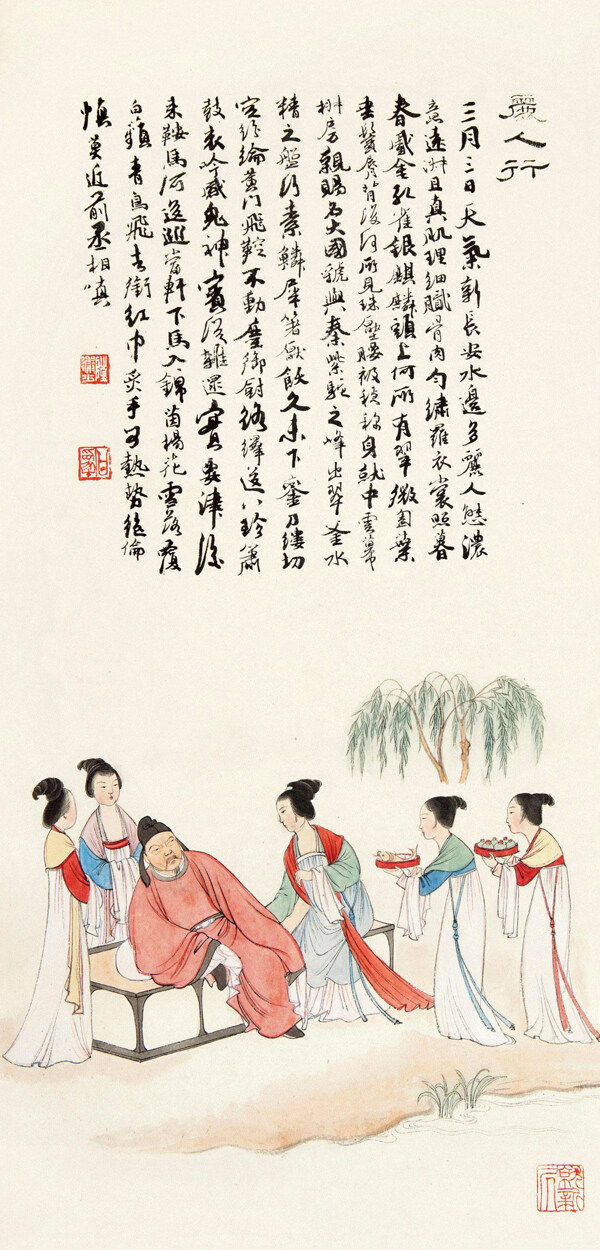 麗人行
三月三日天氣新長安水邊多麗人態濃
意遠淑且真肌理細膩骨肉勻繡羅衣裳照暮
春蹙金孔雀銀麒麟頭上何所有翠微㔩葉
垂鬢脣背後何所見珠壓腰衱穩稱身就中雲幕
椒房親賜名大國虢與秦紫駝之峰出翠釜水
精之盤行素鱗犀箸厭飫久未下鑾刀縷切
空紛綸黃門飛鞚不動塵御廚絡繹送八珍簫
鼓哀吟感鬼神賓從雜遝實要津後
來鞍馬何逡巡當軒下馬入錦茵楊花雪落覆
白蘋青鳥飛去銜紅巾炙手可熱勢絕倫
慎莫近前丞相嗔